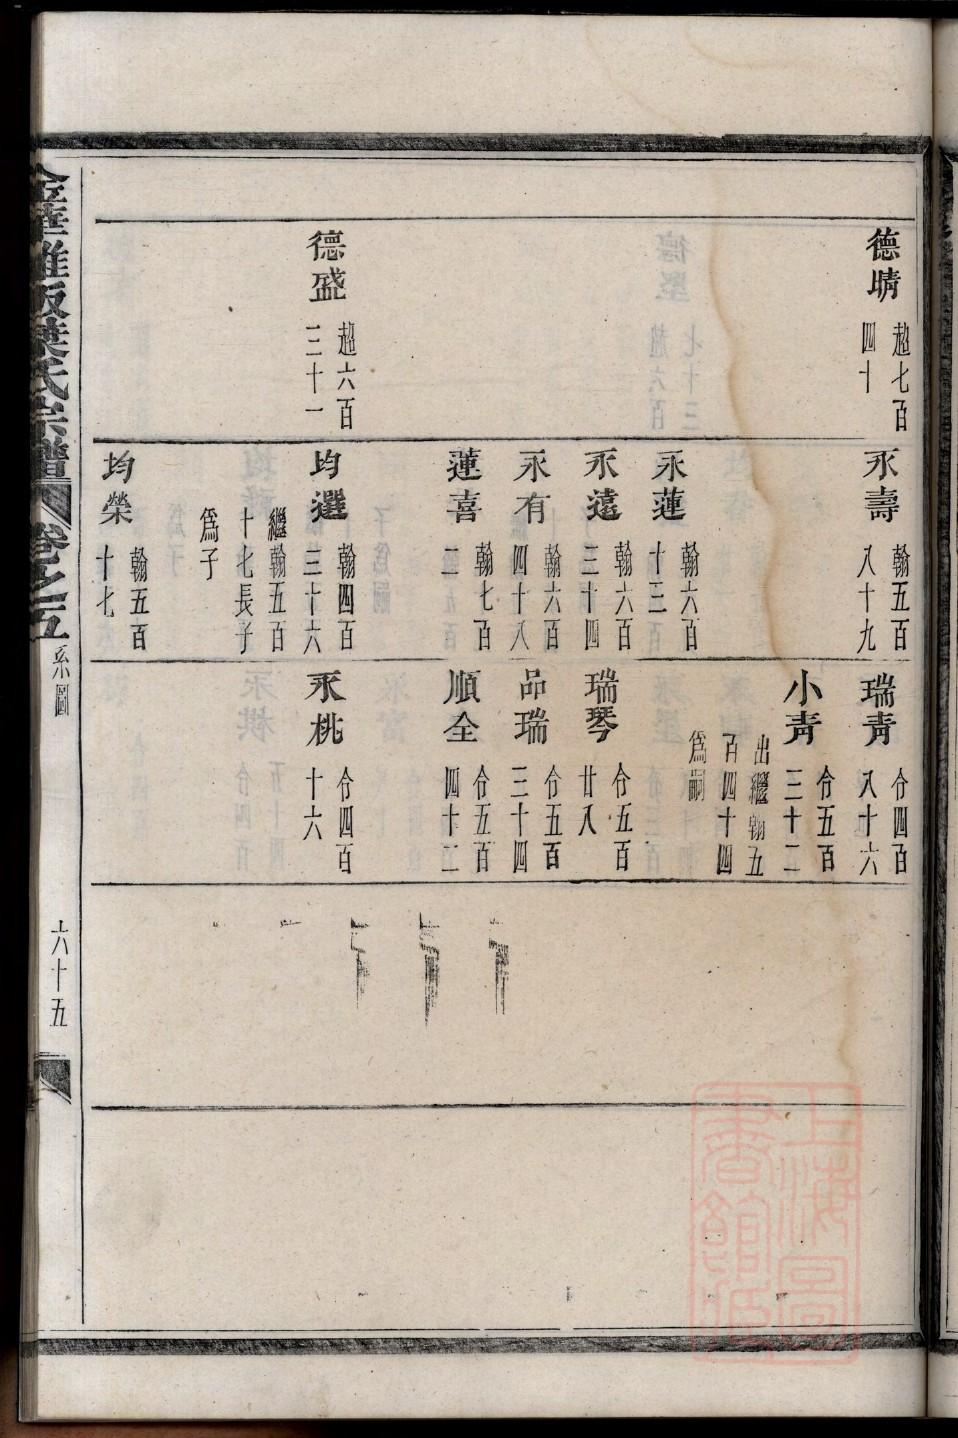 德晴
超七百
四十
德盛
超六百
三十一
永壽
翰五百
八十九
永蓮
翰六百
十三
永遠
翰六百
三十四
永有
翰六百
四十八
蓮喜
翰七百
二
均選
翰四百
三十六
繼翰五百
十七長子
為子
均榮
翰五百
十七
瑞青
合四百
八十六
小青
合五百
三十二
出繼翰五
百四十四
為嗣
瑞琴
合五百
廿八
品瑞
合五百
三十四
順全
合五百
四十二
永桃
合四百
十六
金華雅畈葉氏宗譜
卷之五
系圖
六十五
上海圖
書館藏